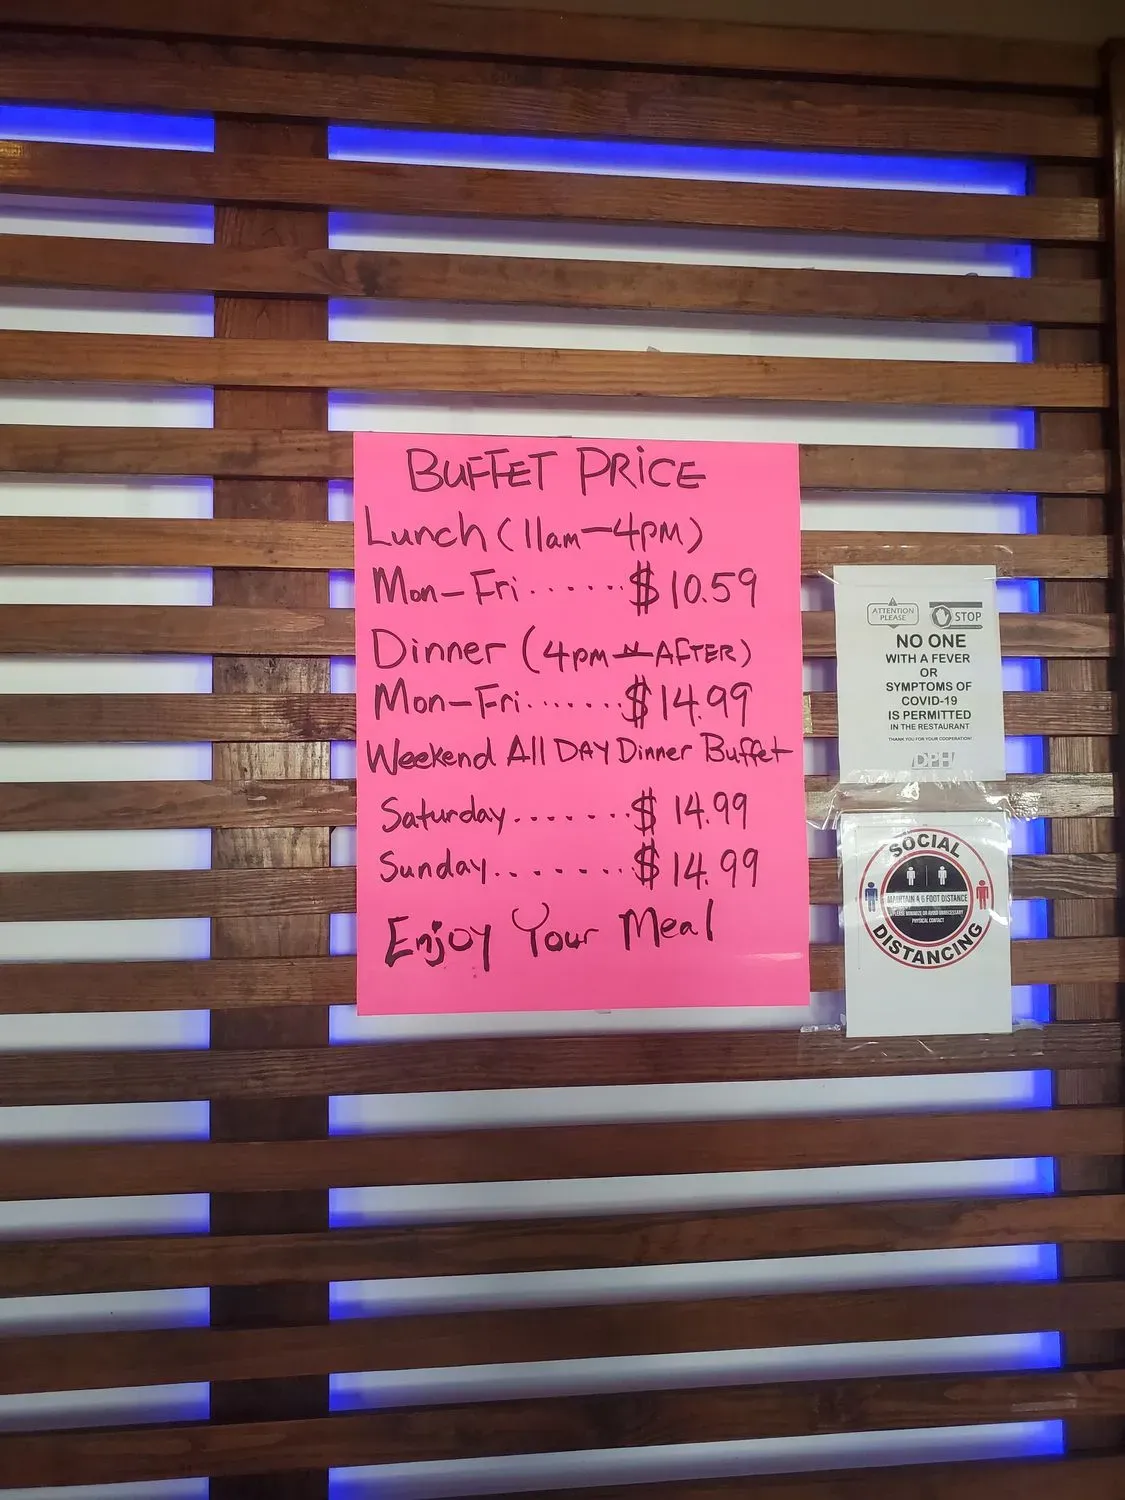 BUFFET PRICE
Lunch (11am-4pm)
Mon-Fri......$10.59
Dinner (4pm~AFTER)
Mon-Fri.......$14.99
Weekend All DAY Dinner Buffet
Saturday.......$14.99
Sunday.......$14.99
Enjoy Your Meal
ATTENTION
PLEASE
STOP
NO ONE
WITH A FEVER
OR
SYMPTOMS OF
COVID-19
IS PERMITTED
IN THE RESTAURANT
THANK YOU FOR YOUR COOPERATION!
DPH
SOCIAL
MAINTAIN A 6 FOOT DISTANCE
PLEASE MINIMIZE OR AVOID UNNECESSARY
PHYSICAL CONTACT
DISTANCING